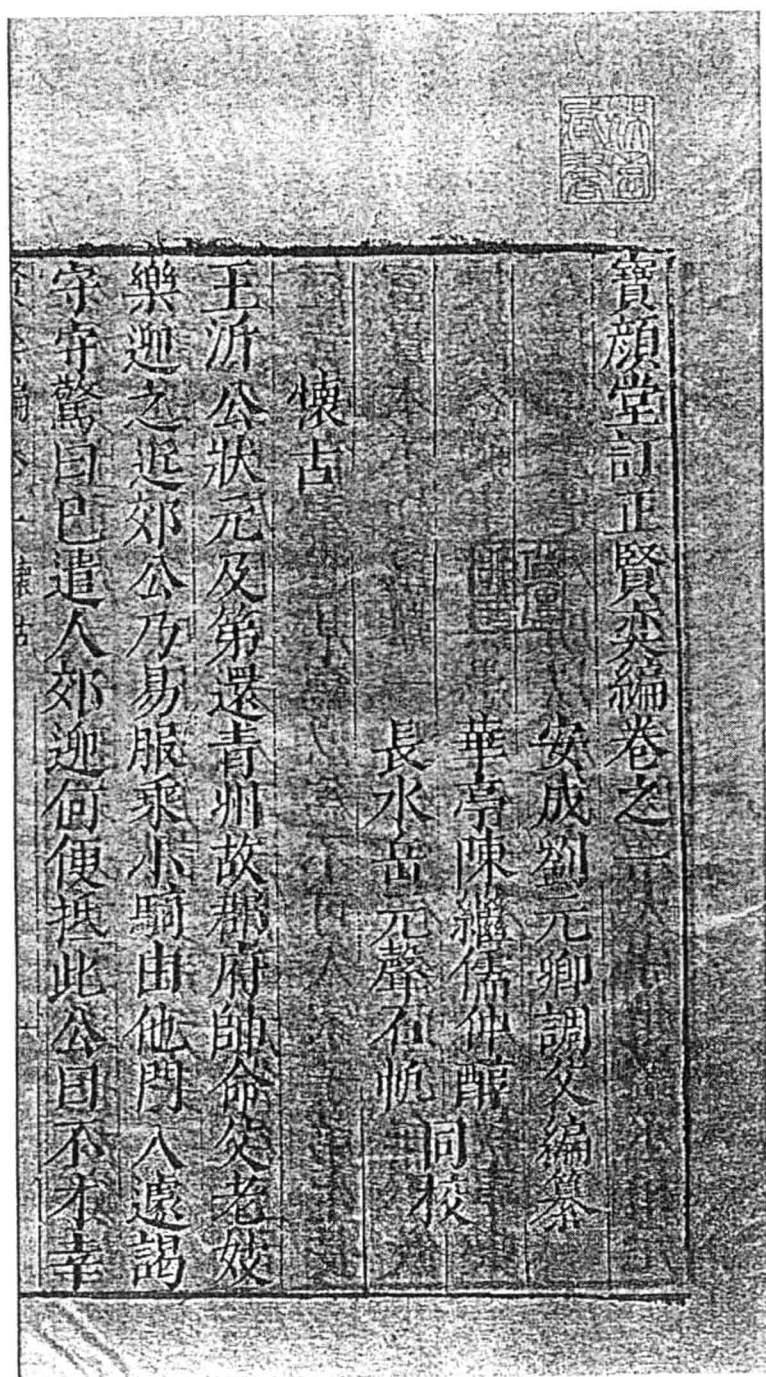 寶顏堂訂正賢奕編卷之一
安成劉元卿調父編纂
華亭陳繼儒仲醇
長水岳元聲石帆
同校
懷古
王沂公狀元及第還青州故郡府帥命父老妓
樂迎之近郊公乃易服乘小駟由他門入遽謁
守守驚曰已遣人郊迎何便抵此公曰不才幸